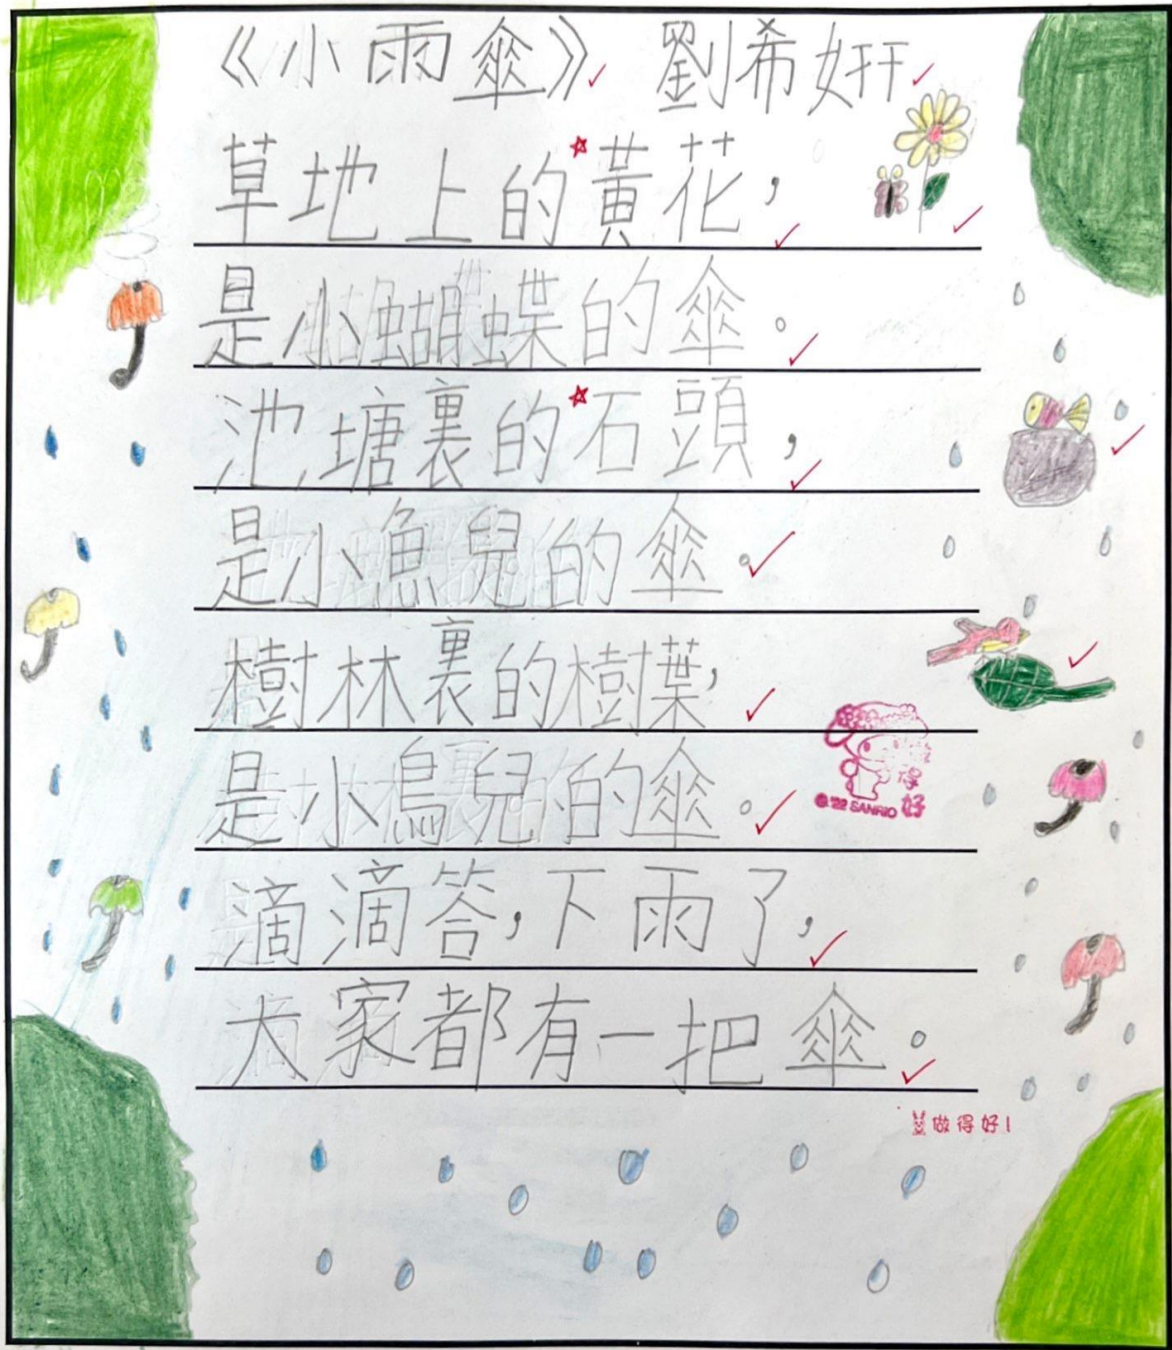 《小雨傘》 劉希妍
草地上的黃花，
是小蝴蝶的傘。
池塘裏的石頭，
是小魚兒的傘。
樹林裏的樹葉，
是小鳥兒的傘。
滴滴答，下雨了，
大家都有一把傘。
好
©'22 SANRIO
做得好!